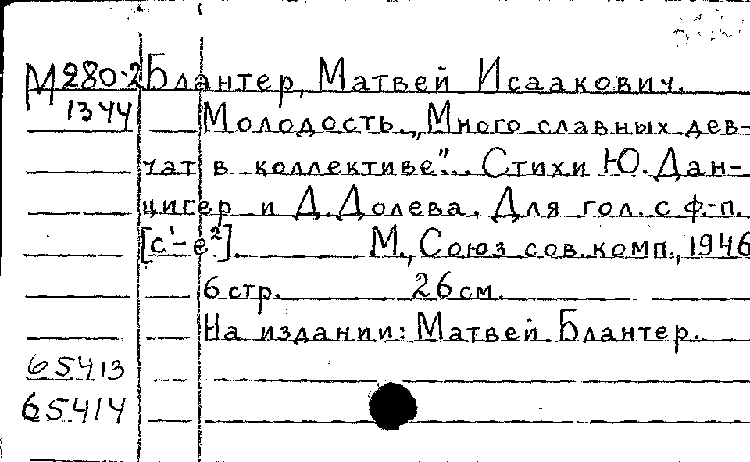 М 280-2 Блантер, Матвей Исаакович.
1344 Молодость. „Много славных дев-
чат в коллективе"... Стихи Ю. Дан-
цигер и Д. Долева. Для гол. с ф.-п.
[с¹-е²]. М., Союз сов. комп., 1946
6 стр. 26 см.
На издании: Матвей Блантер.
65413
65414